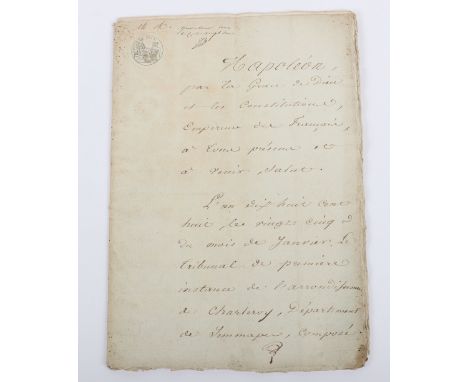 Napoléon,
par la Grace de Dieu
et les Constitutions,
Empereur des Français,
à tous présens et
à venir, Salut.
L'an dix huit cent
huit les vingt cinq
du mois de Janvier. Le
tribunal de première
instance de l'arrondissement
de Charleroy, Département
de Jemmapes, Composé